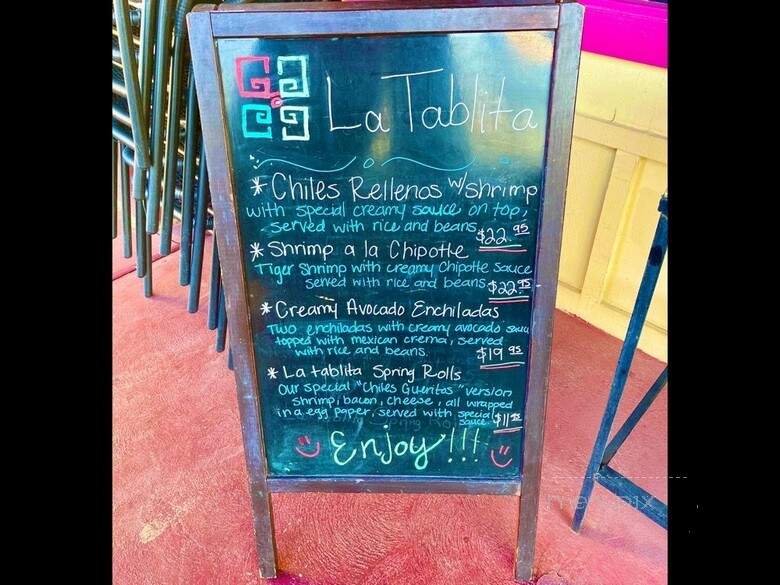 La Tablita
* Chiles Rellenos w/shrimp
with special creamy sauce on top,
served with rice and beans. $22.95
* Shrimp a la Chipotle
Tiger Shrimp with creamy Chipotle sauce
served with rice and beans. $22.95
* Creamy Avocado Enchiladas
Two enchiladas with creamy avocado sauce
topped with mexican crema, served
with rice and beans. $19.95
* La tablita Spring Rolls
Our special "Chiles Gueritos" version
shrimp, bacon, cheese, all wrapped
in a egg paper, served with special
sauce.
Enjoy!!!